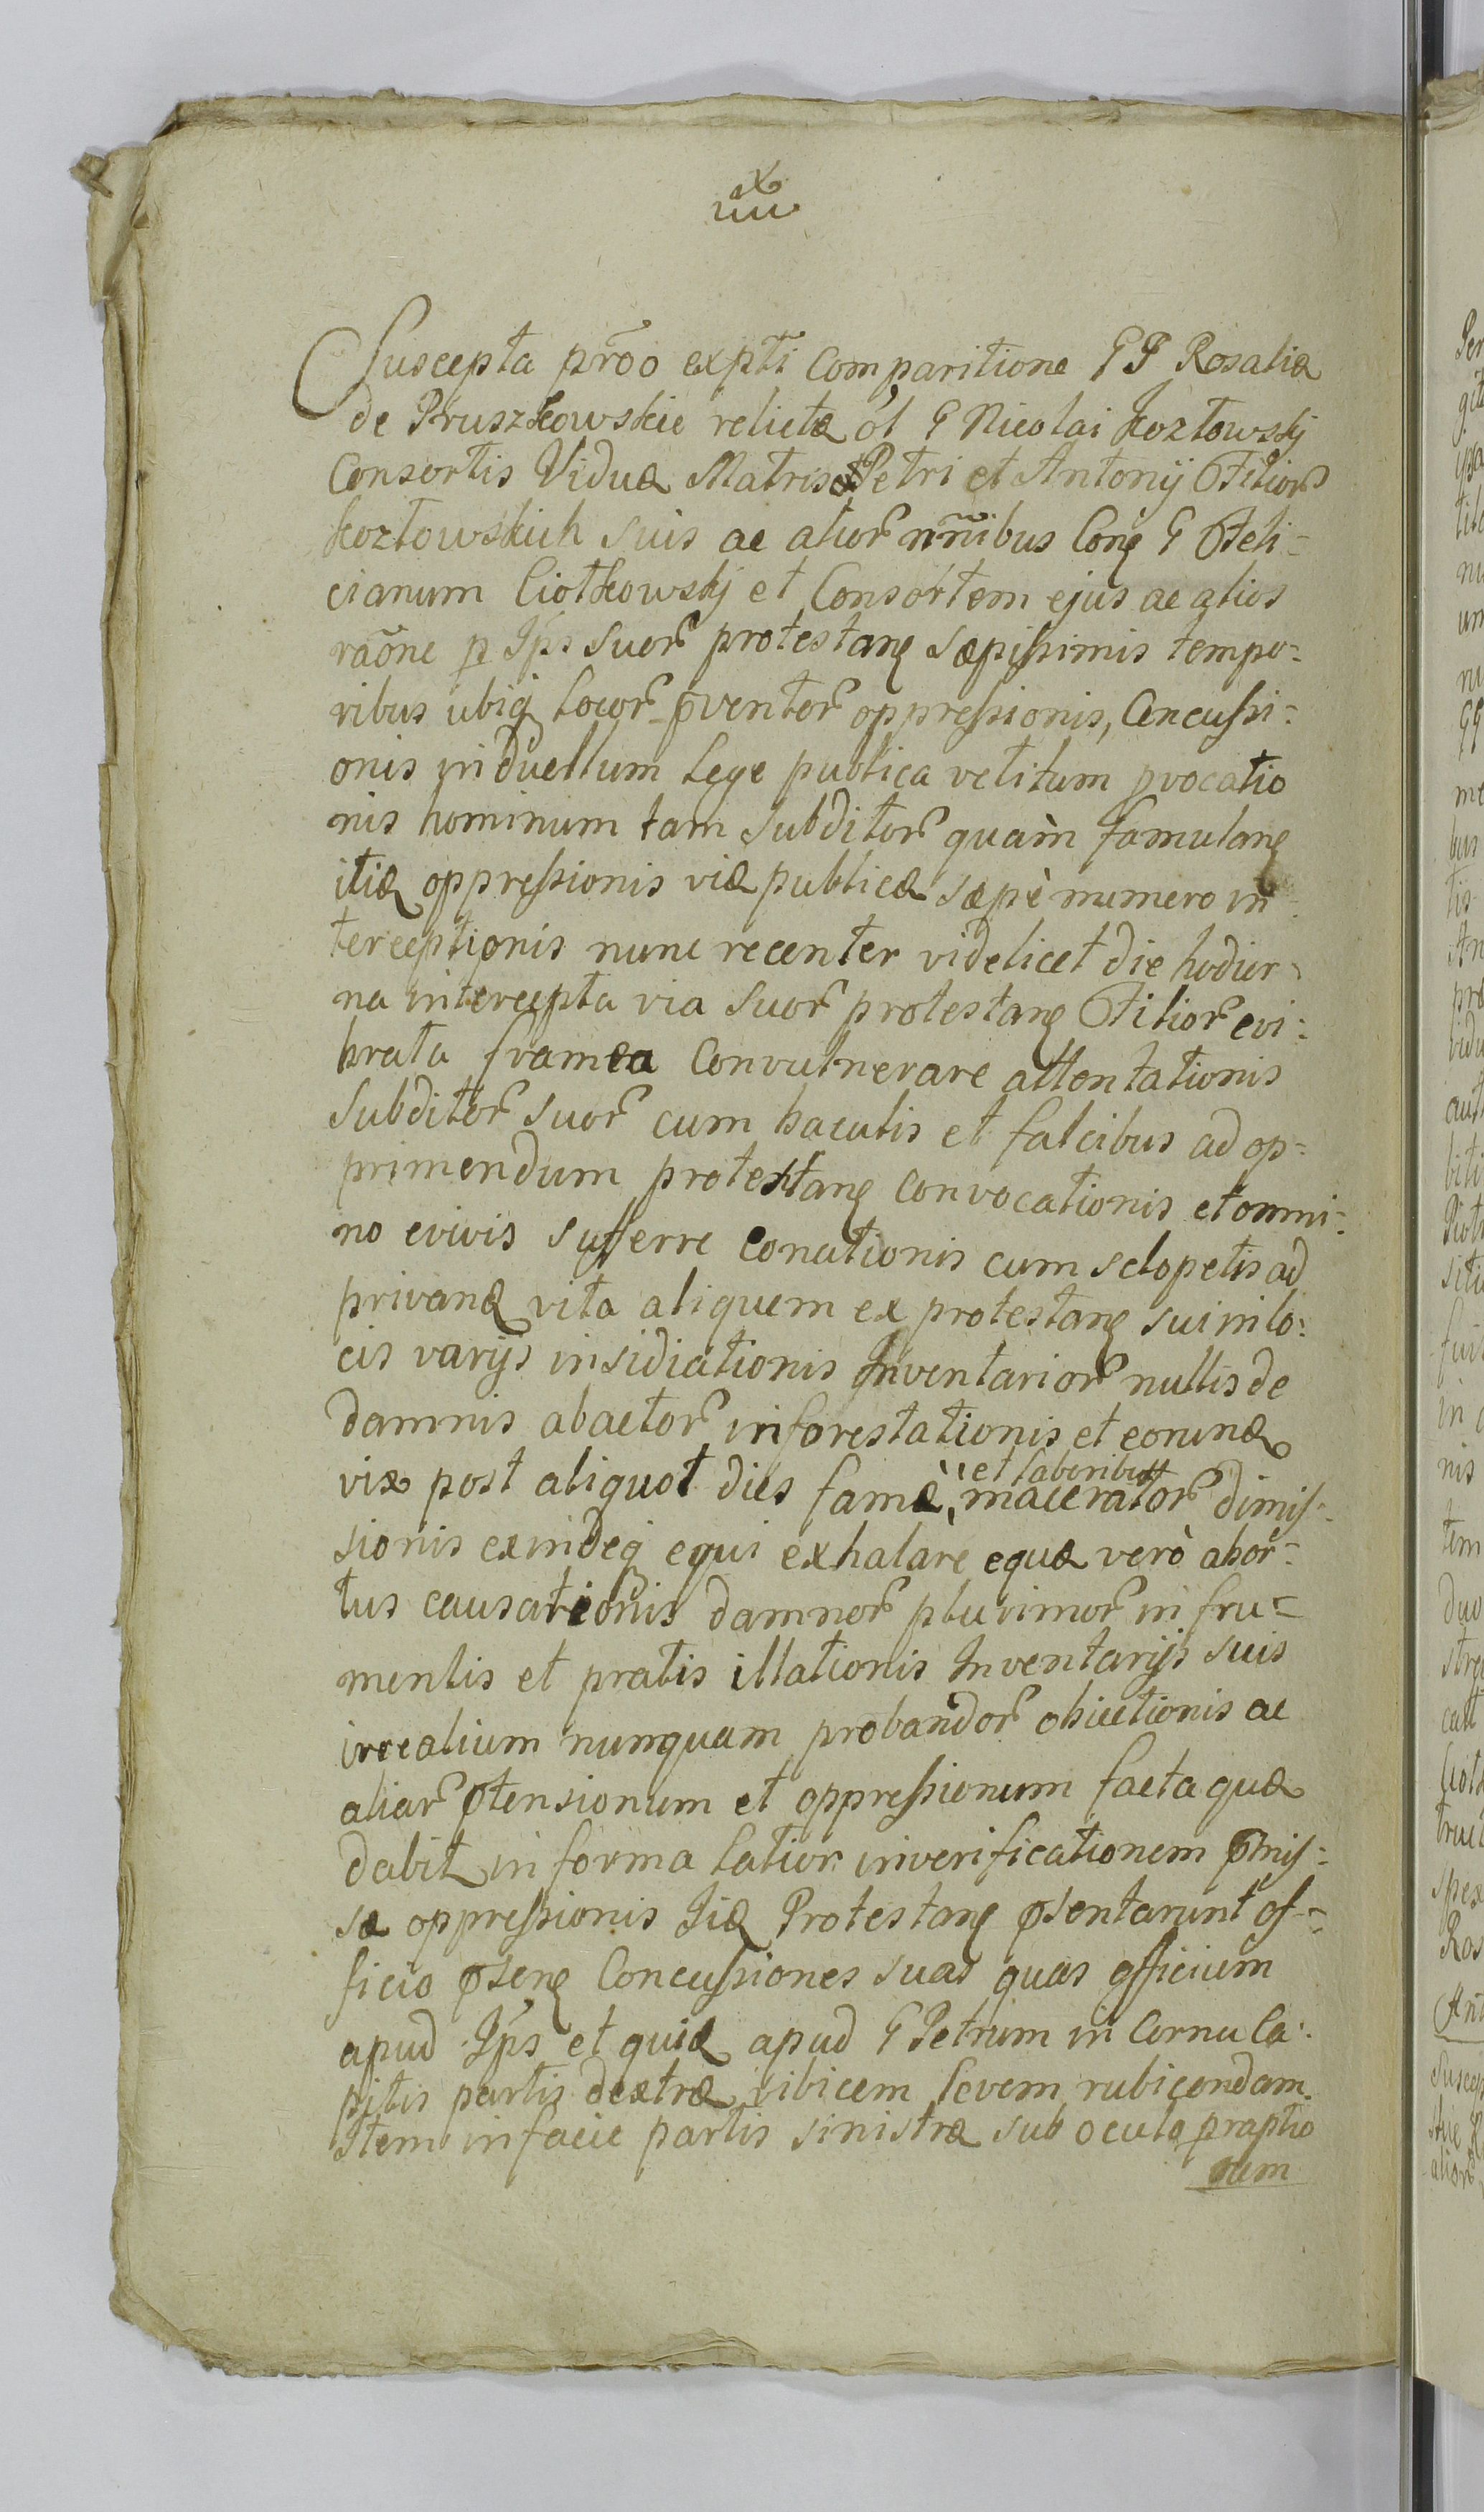 Suscepta pr̃oo expti Comparitione G G Rosaliæ
de Pruszkowskie relictæ ol G Nicolai Kozłowskj
Consortis Viduæ Matris & Petri et Antonij Filior
Kozłowskich suis ac alior nñibus Conӡ G Feli=
cianum Ciołkowskj et Consortem ejus ac alios
raõne p Ip̃s suor protestanӡ sæpissimis tempo=
ribus ubiqӡ locor pventor oppressionis, Concussi=
onis in duellum Lege publica vetitum pvocatio
nis hominum tam subditor quàm famulanӡ
itiӡ oppressionis viæ publicæ sæpè numero in=
terceptionis nunc recenter videlicet die hodier=
na intercepta via suor protestanӡ Filior evi=
brata framea Convulnerare attentationis
Subditor suor cum baculis et falcibus ad op=
primendum protestanӡ convocationis et omni=
no evivis sufferre conationis cum sclopetis ad
privanӡ vita aliquem ex protestanӡ sui in lo=
cis varijs insidiationis Inventarior nullis de
damnis abactor inforestationis et eorunӡ
vix post aliquot dies famè, et laboribus macerator dimis=
sionis exindeqӡ equi exhalare equæ verò abor=
tus causationis damnor plurimor in fru=
mentis et pratis illationis Inventarijs suis
irrealium nunquam probandor obiectionis ac
aliar ptensionum et oppressionum facta quæ
dabit in forma latior in verificationem pmis=
sæ oppressionis Iiӡ Protestanӡ psentarunt of=
ficio psenӡ Concussiones suas quas officium
apud Ip̃s et quiӡ apud G Petrum in Cornu Ca=
pitis partis dextræ vibicem levem rubicondam
Item in facie partis sinistræ sub oculo praptio
nem